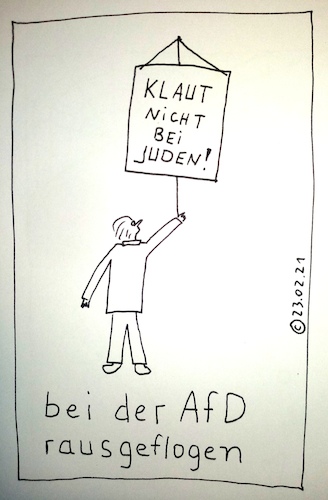 KLAUT
NiCHT
BEi
JUDEN!
©23.02.21
bei der AfD
rausgeflogen